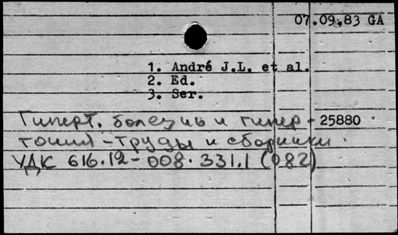 07.09.83 GA
1. André J.L. et al.
2. Ed.
3. Ser.
Гиперт. болезнь и гипер- 25880
тония - труды и сборники.
УДК 616.12-008.331.1 (082)